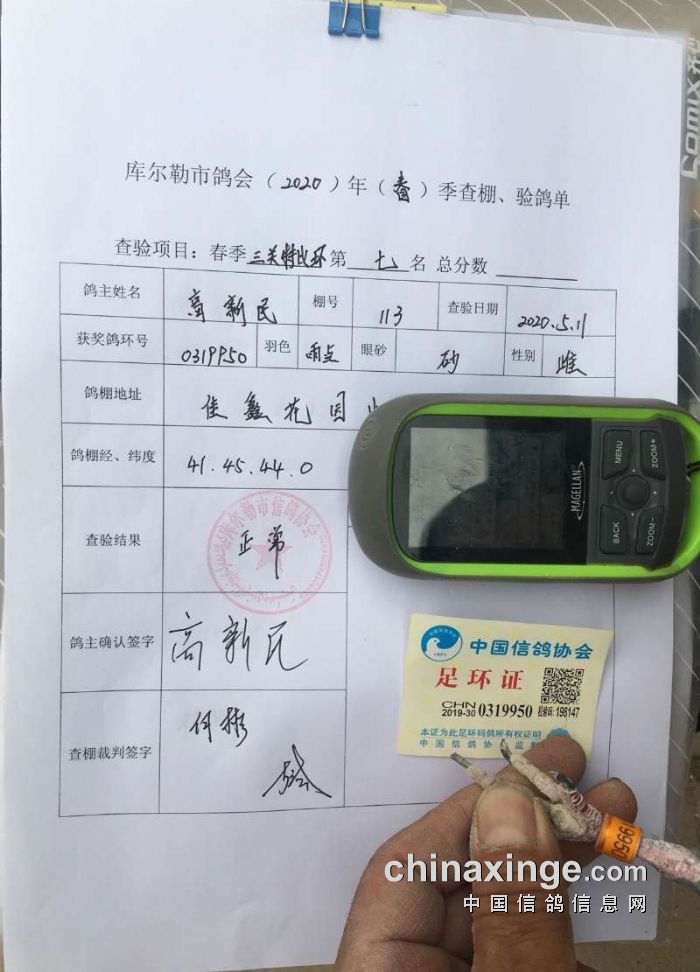 库尔勒市鸽会（2020）年（春）季查棚、验鸽单
查验项目：春季三关特比环第 七 名 总分数
鸽主姓名 高新民 棚号 113 查验日期 2020.5.11
获奖鸽环号 0319950 羽色 雨点 眼砂 砂 性别 雌
鸽棚地址 佳鑫花园
鸽棚经、纬度 41.45.44.0
查验结果 正常
库尔勒市信鸽协会
鸽主确认签字 高新民
查棚裁判签字 何彬
MAGELLAN
MENU
ZOOM+
BACK
ZOOM-
中国信鸽协会
足环证
CHN
2019-30 0319950 校验码: 198147
本证为此足环码鸽所有权证明
中国信鸽协会监制
9950
chinaxinge.com
中国信鸽信息网